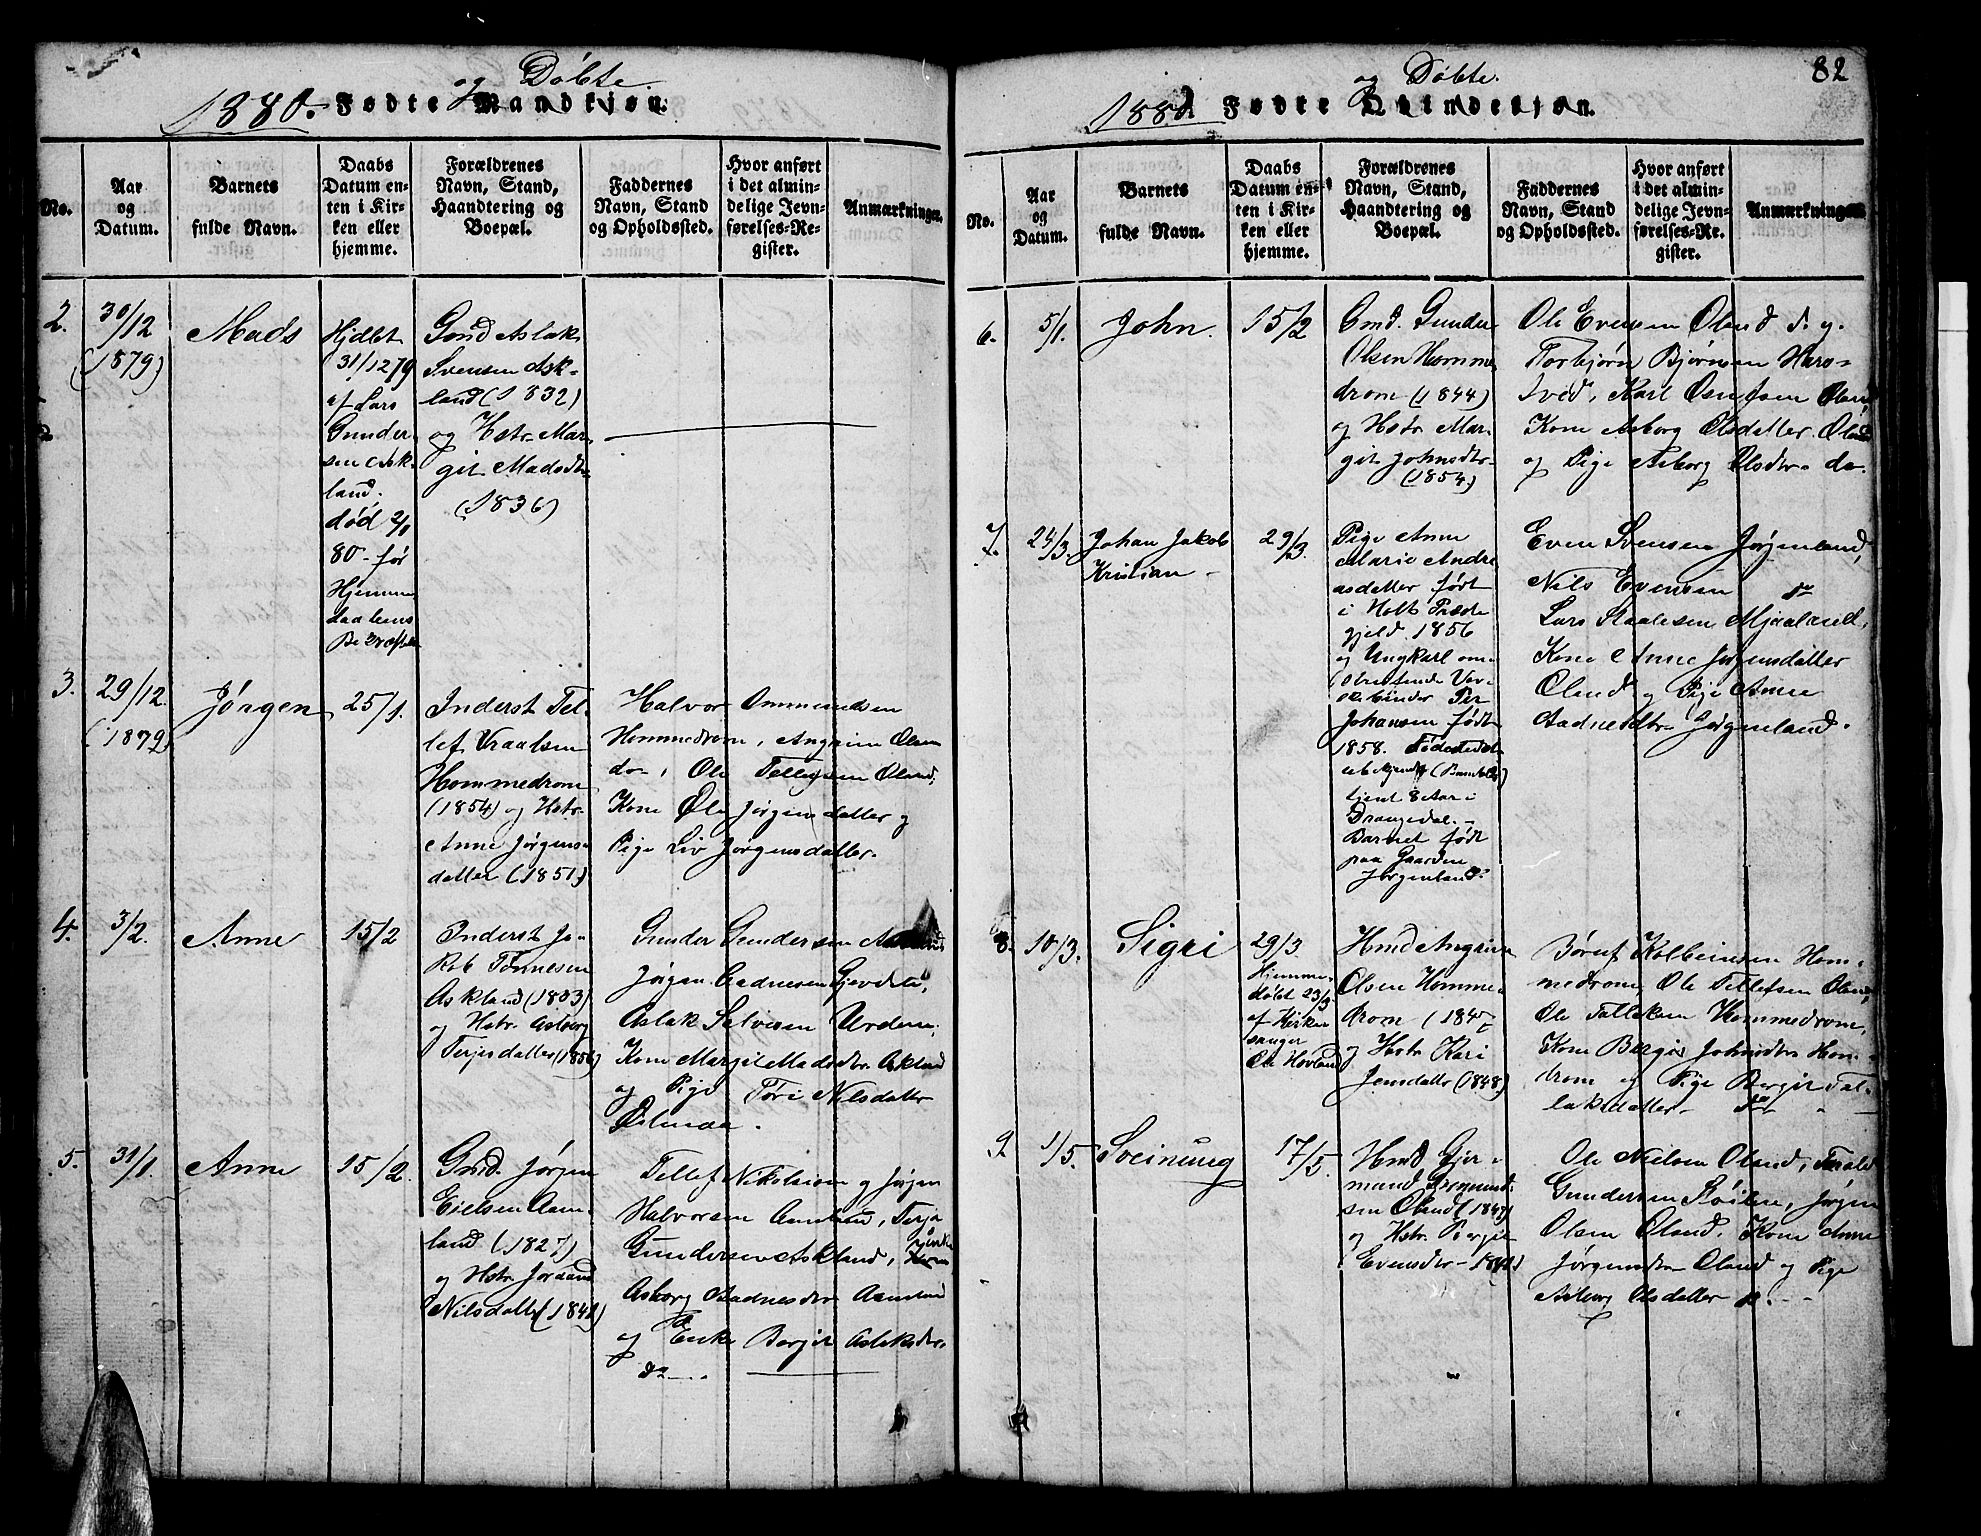 og Döbte.
1880. Fødte Mandkjøn.
No.
Aar
og
Datum.
Barnets
fulde Navn.
Daabs
Datum en-
ten i Kir-
ken eller
hjemme.
Forældrenes
Navn, Stand,
Haandtering og
Boepæl.
Faddernes
Navn, Stand
og Opholdssted.
Hvor anført
i det almin-
delige Jevn-
førelses-Re-
gister.
Anmærkninger.
2.
30/12
(1879)
Mads
Hjdbt
31/12 79
af Lars
Gunder-
sen Ask-
land.
død 2/1
80 - før
Hjemme
daabens
Gmd Aslak
Svensen Ask-
land (1832)
og Hstr. Mar-
git Madsdtr
(1836)
3.
29/12.
(1879)
Jörgen
25/1.
Inderst Tel-
lef Vraalsen
Hommedrom
(1854) og Hstr.
Anne Jörgens-
datter (1851)
Halvor Ommundsen
Hommedrom, Angrim Olsen
do-, Ole Tellefsen Oland,
Kone Öle Jörgensdatter og
Pige Liv Jorgensdatter.
4.
3/2.
Anne
15/2
Inderst Ja-
kob Tönnesen
Askland (1853)
og Hstr. Asberg
Terjesdatter (1856)
Gunder Gundersen
Jörgen Aadnesen Gjevdeli,
Aslak Salvesen Urdene,
Kone Margit Madsdtr. Askland
og Pige Töri Nilsdatter
5.
31/1.
Anne
15/2.
Gmd. Jörgen
Eielsen Aam-
land (1827)
og Hstr. Joraand
Nilsdatt (1842)
Tellef Nikolaisen og Jörgen
Halvorsen Aamland, Terje
Gundersen Askland,
Asborg Aadnesdtr Aamland
og Enke Bergit Aslaksdtr.
do -.
82
og Döbte.
1880. Fødte Qvindekjøn.
No.
Aar
og
Datum.
Barnets
fulde Navn.
Daabs
Datum en-
ten i Kir-
ken eller
hjemme.
Forældrenes
Navn, Stand,
Haandtering og
Boepæl.
Faddernes
Navn, Stand
og Opholdssted.
Hvor anført
i det almin-
delige Jevn-
førelses-Re-
gister.
Anmærkninger.
6.
5/1.
John.
15/2
Gmd. Gunder
Olsen Homme
drom (1844)
og Hstr. Mar-
git Johnsdtr.
(1854)
Ole Evensen Öland d. y.
Torbjörn Björnsen Hers-
tved, Karl Osufsen Öland
Kone Asborg Olsdatter Öland
og Pige Asborg Olsdtr. do.
7.
24/3.
Johan Jakob
Kristian -
29/3.
Pige Anne
Marie Andre
asdatter født
i Holt Præste
gjeld 1856
og Ungkarl om-
Johansen født
1858. Födested
tjent 8 Aar i
Drangedal. -
Barnet født
paa Gaarden
Jörgenland.
Even Svensen Jörgenland,
Nils Evensen do
Lars Staalesen Mjaaland,
Kone Anne Jörgensdatter
Öland og Pige Anne
Aadnesdtr Jörgenland.
8.
10/3.
Sigri
29/3
Hjemme-
döbt 23/3
af Kirke-
sanger
Ole Hovland
Hmd Angrim
Olsen Homme-
drom (184
og Hstr. Kari
Jensdattr (1848)
Böruf Kolbeinsen Hom-
medrom, Ole Tellefsen Öland,
Ole Tallaksen Hommedrom,
Kone Bergit Johnsdtr Hom-
drom og Pige Bergit Tal-
laksdatter - do -
9
1/5.
Sveinung
17/5.
Hmd Gjer-
mund Germund-
sen Öland (1847)
og Hstr. Bergit
Evensdtr -
Ole Nielsen Öland, Tarald
Gundersen Stöilen, Jörgen
Olsen Öland, Kone Anne
Jörgensdtr Öland og Pige
Asborg Olsdatter do. -